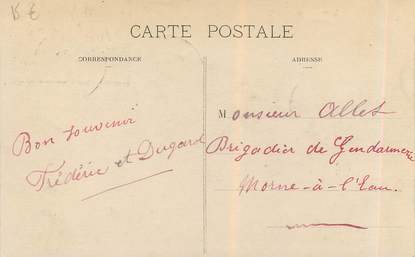 CARTE POSTALE
CORRESPONDANCE
ADRESSE
Bon souvenir
Frédéric et Dugard
Monsieur Allet
Brigadier de Gendarmerie
Morne-à-l'Eau.